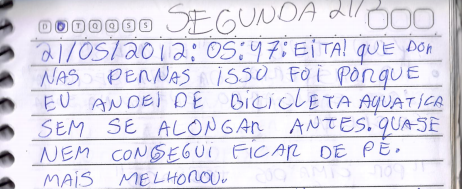 D S T Q Q S S SEGUNDA 21/5
21/05/2012: 05:47: EITA! QUE DOR
NAS PERNAS ISSO FOI PORQUE
EU ANDEI DE BICICLETA AQUATICA
SEM SE ALONGAR ANTES. QUASE
NEM CONSEGUI FICAR DE PÉ.
MAIS MELHOROU.